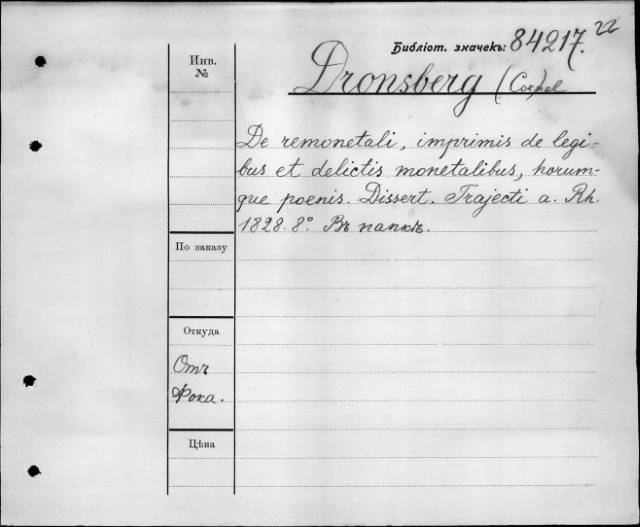 Библіот. значекъ: 84217. 22
Инв. №
Dronsberg (Cornel
De remonetali, imprimis de legi-
bus et delictis monetalibus, horum-
que poenis. Dissert. Trajecti a. Rh.
1828. 8°. Въ папкѣ.
По заказу
Откуда
Отъ
Фока.
Цѣна